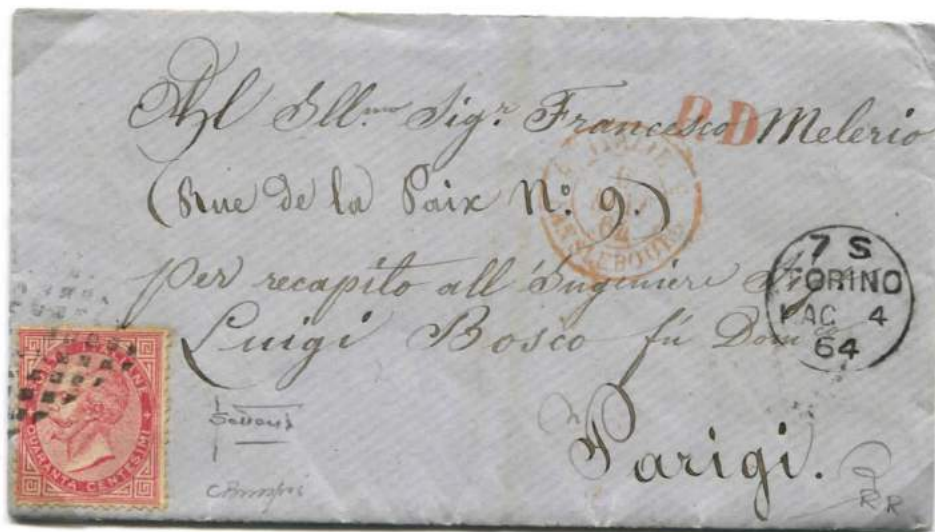 Al Ill.mo Sig.r Francesco Melerio
P.D.
(Rue de la Paix N.º 9.)
per recapito all'Ingeniere
Luigi Bosco fù Dom.co
Parigi.
7 S
TORINO
AG 4
64
QUARANTA CENTESIMI
RR